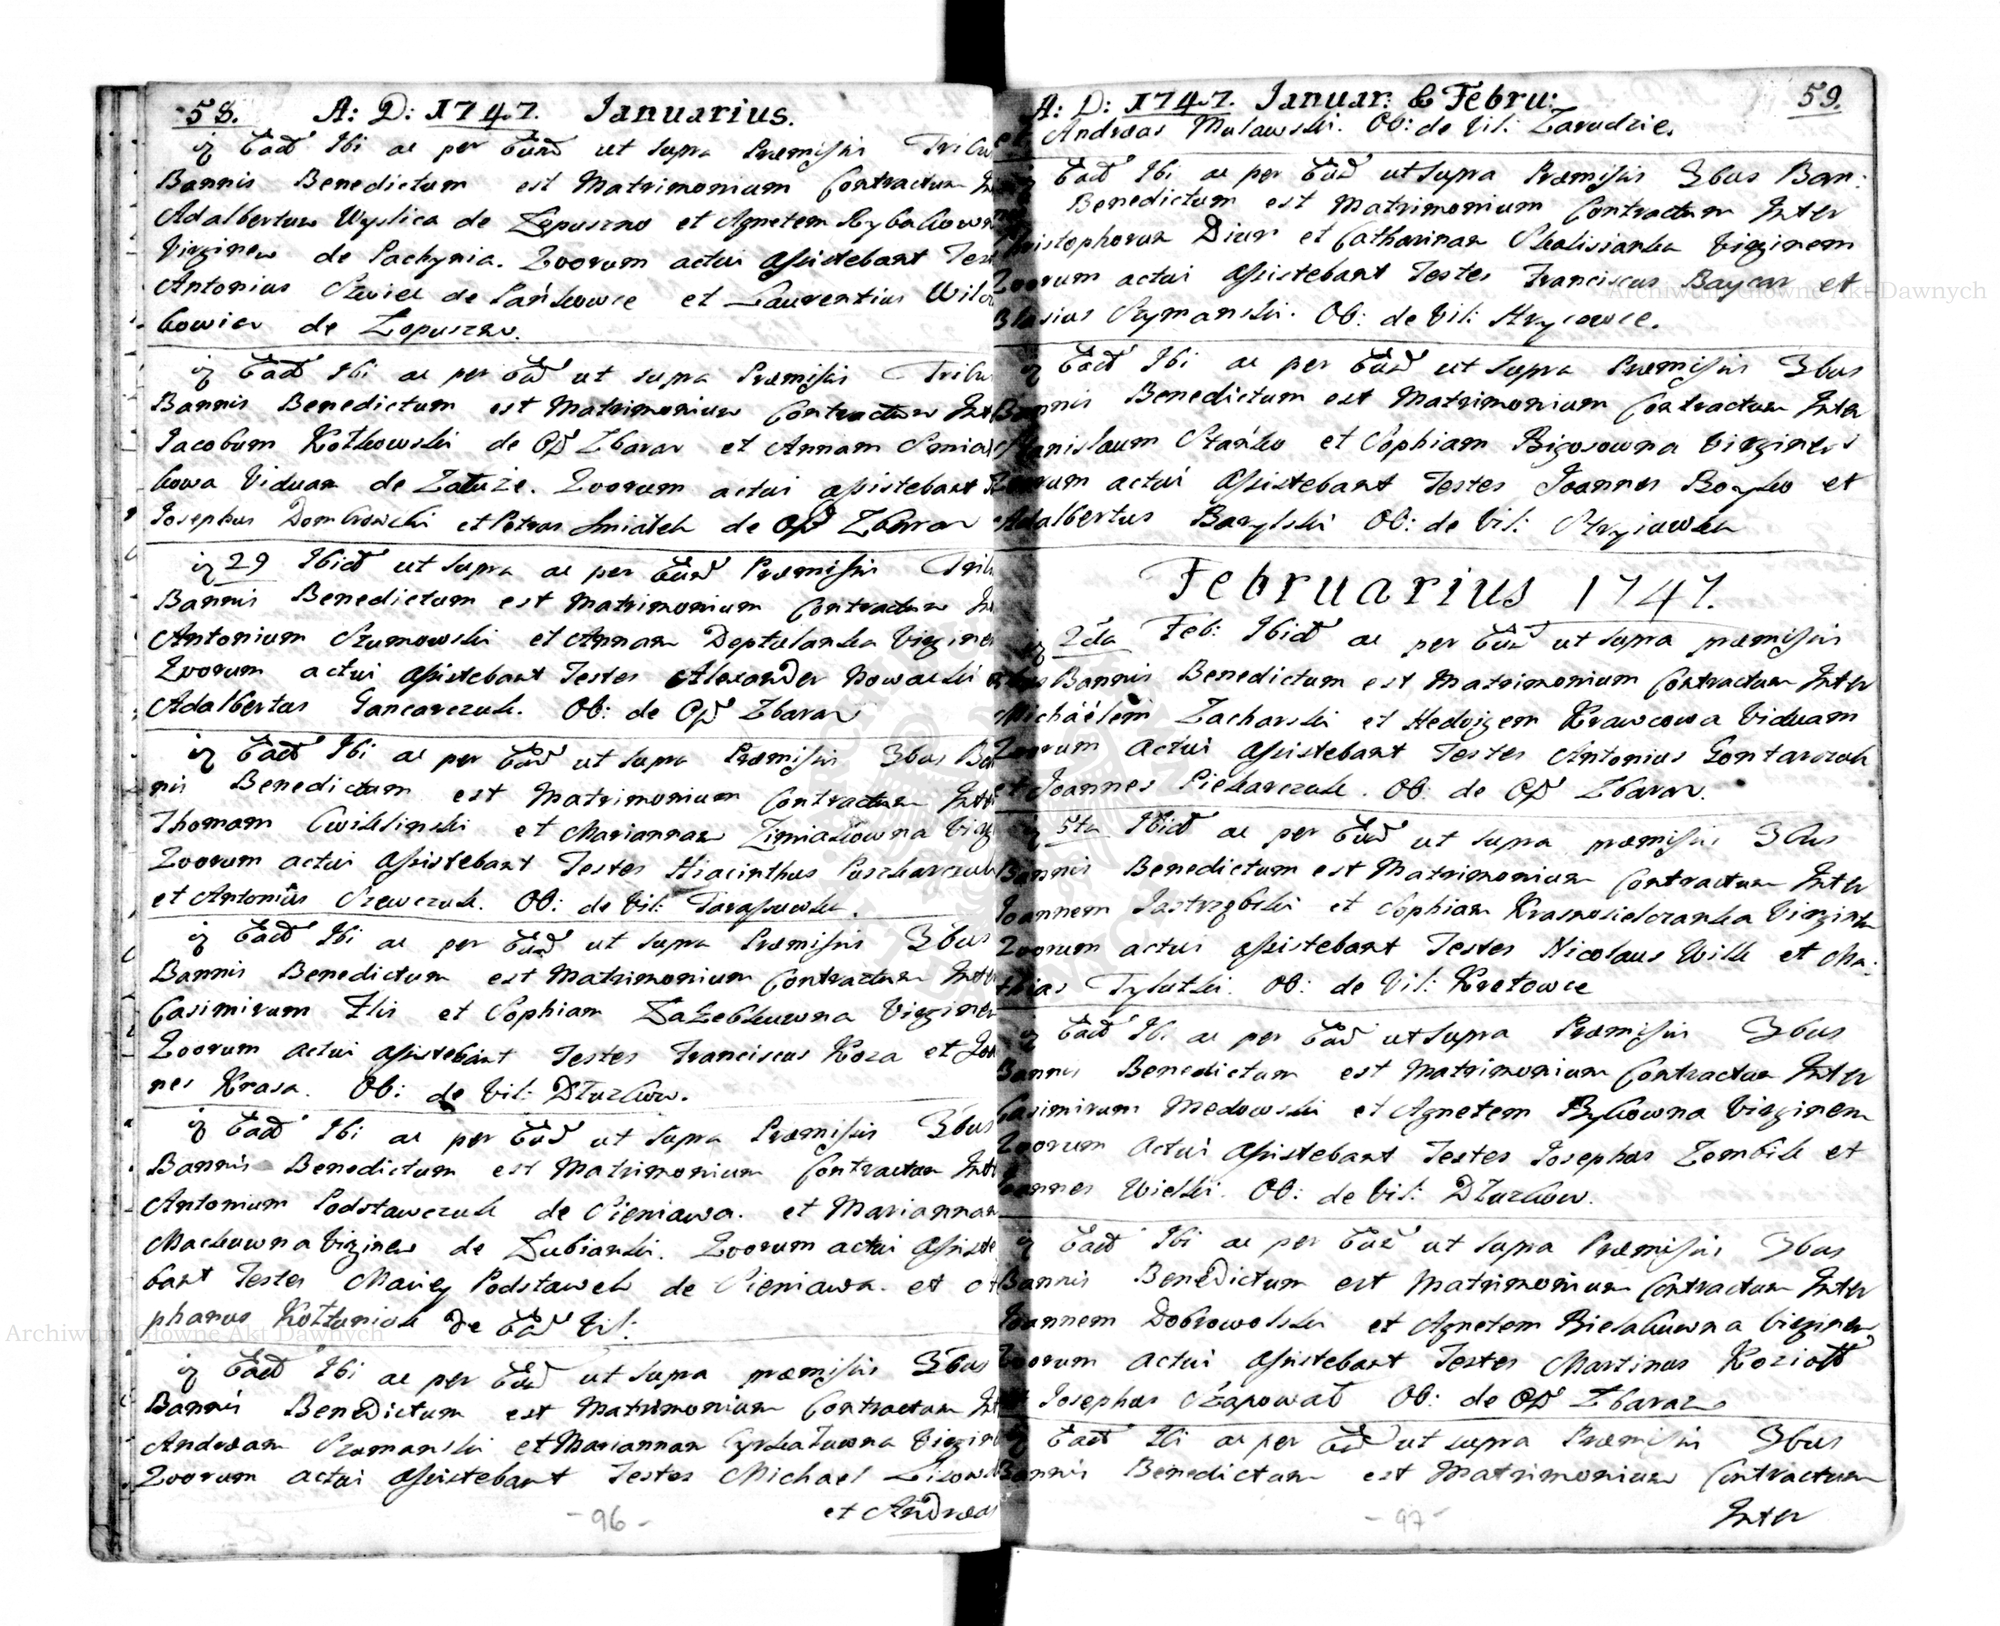 58. A: D: 1747. Ianuarius.
Ead Ibi ac per Eund ut supra Præmissis Tribus
Bannis Benedictum est Matrimonium Contractum
Adalbertum Wyslica de Łopuszno et Agnetem Rybakowna
Virginem de Pachynia. Quorum actui assistebant
Antonius de Pańkowce et Laurentius
kowicz de Łopuszno.
Ead Ibi ac per Eund ut supra Præmissis
Bannis Benedictum est Matrimonium Contractum
Iacobum Kotkowski de Opp Zbaraz et Annam
kowa Viduam de Załuże. Quorum actui assistebant
Iosephus Dombrowski et Petrus Smiałek de Opp Zbaraz
29 Ibid ut supra ac per Eund Præmissis
Bannis Benedictum est Matrimonium Contractum
Antonium Szumowski et Annam Deptulanka
Quorum actui assistebant Testes Alexander Nowacki
Adalbertus Gancarczuk. Ob: de Opp Zbaraz
Ead Ibi ac per Eund ut supra Præmissis 3bus
nis Benedictum est Matrimonium Contractum
Thomam Cwiklinski et Mariannam Zimiakowna
Quorum actui assistebant Testes Hiacinthus
et Antonius Szewczuk. Ob: de Vil: Tarassuwka.
Ead Ibi ac per Eund ut supra Præmissis 3bus
Bannis Benedictum est Matrimonium Contractum
Casimirum Ilis et Sophiam
Quorum actui assistebant Testes Franciscus Koza et
nes Krasa. Ob: de Vil: Dłuzkow.
Ead Ibi ac per Eund ut supra Præmissis 3bus
Bannis Benedictum est Matrimonium Contractum
Antonium Podstawczuk de Pieniawa. et Mariannam
Mackuwna Virginem de Lubianki. Quorum actui
bant Testes Maciey Podstawek de Pieniawa. et
phanus Kołtuniak de Ead Vil:
Ead Ibi ac per Eund ut supra præmissis 3bus
Bannis Benedictum est Matrimonium Contractum
Andream Szumanski et Mariannam
Quorum actui assistebant Testes Michael
et Andreas
- 96 -
A: D: 1747. Ianuar: & Febru: 59.
et Andreas Mulawski. Ob: de Vil: Zarudzie.
Ead Ibi ac per Eund ut supra Præmissis 3bus Ban:
Benedictum est Matrimonium Contractum Inter
et Catharinam Skalisianka Virginem
Quorum actui assistebant Testes Franciscus Baycar et
Blasius Szymanski. Ob: de Vil: Hrycowce.
Ead Ibi ac per Eund ut supra Præmissis 3bus
Bannis Benedictum est Matrimonium Contractum Inter
Stanislaum Stańko et Sophiam Bigosowna Virginem
Quorum actui assistebant Testes Joannes Boyko et
Adalbertus Barylski Ob: de Vil: Stryiowka
Februarius 1747.
2da Feb: Ibid ac per Eund ut supra præmissis
Bannis Benedictum est Matrimonium Contractum Inter
Michäelem Zacharski et Hedvigem Krawcowa Viduam
Quorum actui assistebant Testes Antonius Gontarczuk
et Joannes Piekarczuk. Ob: de Opp Zbaraz.
5ta Ibid ac per Eund ut supra præmissis 3bus
Bannis Benedictum est Matrimonium Contractum Inter
Joannem Jastrzębski et Sophiam Krasnosielczanka Virginem
Quorum actui assistebant Testes Nicolaus Wilk et Ma:
thias Tylutki. Ob: de Vil: Kretowce
Ead Ibi ac per Eund ut supra Præmissis 3bus
Bannis Benedictum est Matrimonium Contractum Inter
Casimirum Medowski et Agnetem Bykowna Virginem
Quorum actui assistebant Testes Iosephus Zembik et
Joannes Wielki. Ob: de Vil: Dłuzkow.
Ead Ibi ac per Eund ut supra Præmissis 3bus
Bannis Benedictum est Matrimonium Contractum Inter
Joannem Dobrowolski et Agnetem Bielakuwna Virginem
Quorum actui assistebant Testes Martinus Koziołł
et Iosephus Szapował Ob: de Opp Zbaraz
Ead Ibi ac per Eund ut supra Præmissis 3bus
Bannis Benedictum est Matrimonium Contractum
Inter
- 97 -
Archiwum Główne Akt Dawnych
Archiwum Główne Akt Dawnych